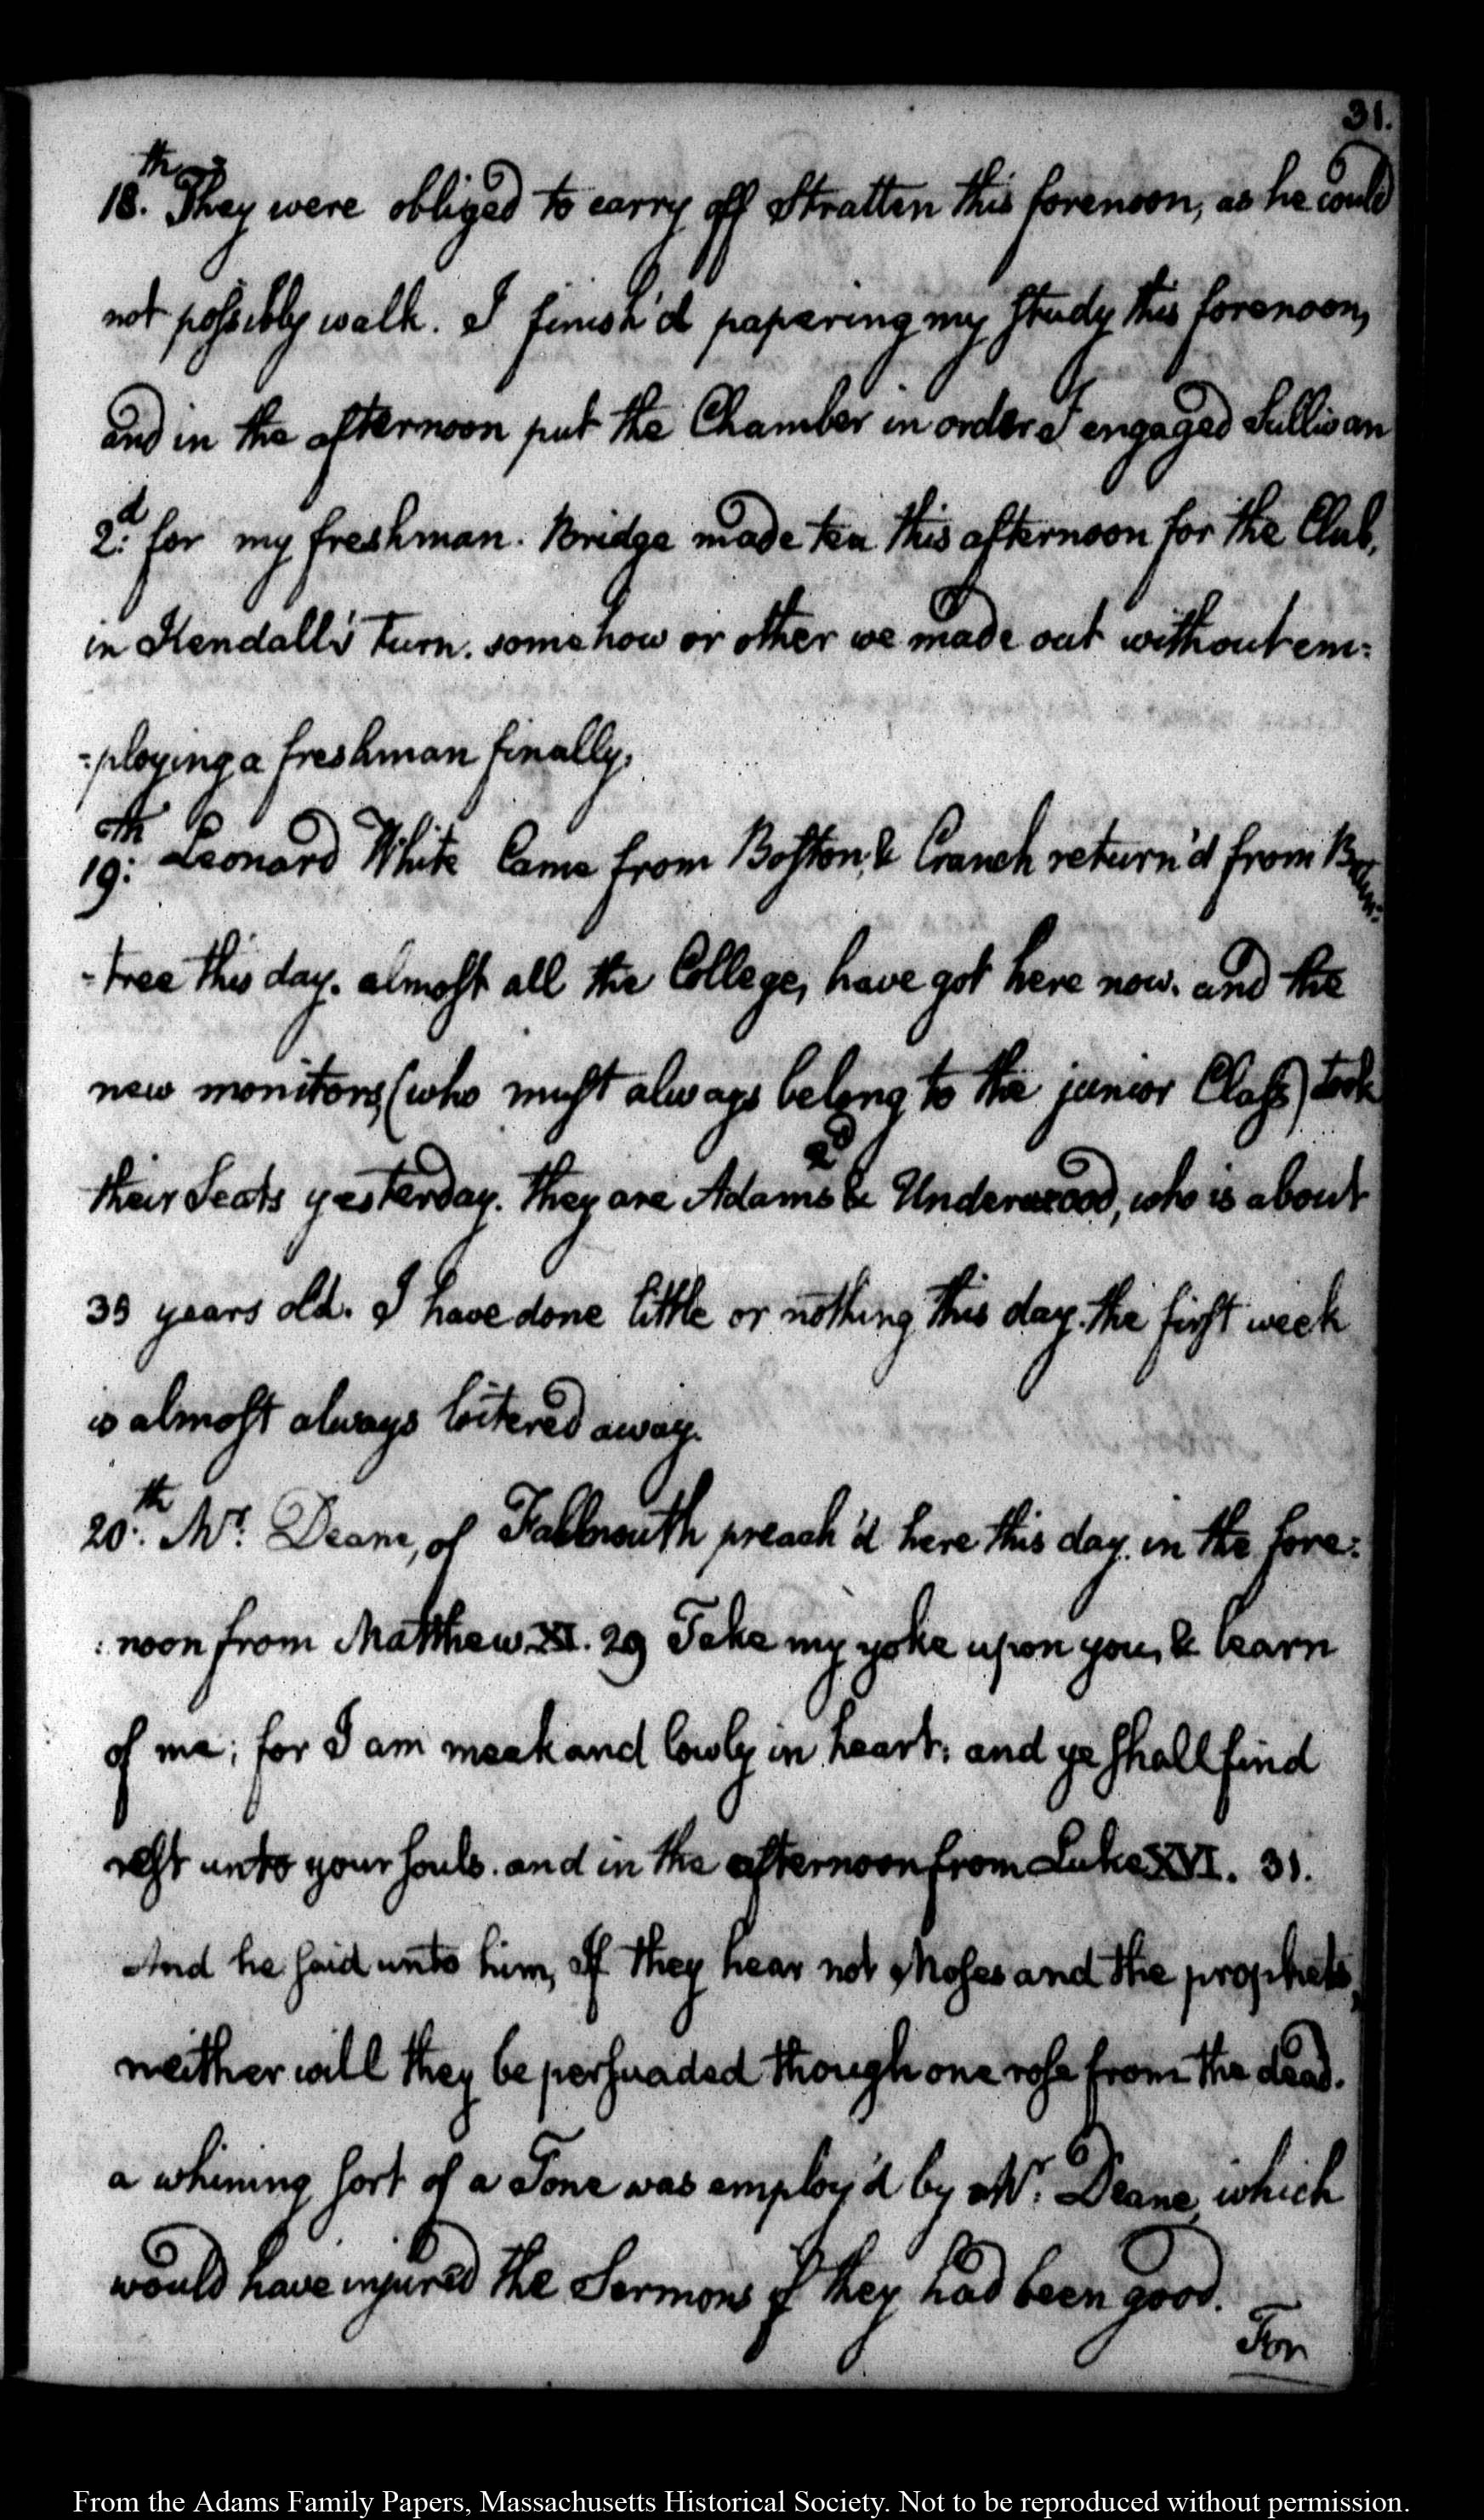 31.
18.th They were obliged to carry off Stratten this forenoon, as he could
not possibly walk. I finish'd papering my study this forenoon,
and in the afternoon put the Chamber in order I engaged Sullivan
2.d for my freshman. Bridge made tea this afternoon for the Club,
in Kendall's turn. somehow or other we made out without em:
-ploying a freshman finally.
19:th Leonard White Came from Boston, & Cranch return'd from Brain:
-tree this day. almost all the College, have got here now. and the
new monitors (who must always belong to the junior Class) took
their Seats yesterday. they are Adams 2d & Underwood, who is about
35 years old. I have done little or nothing this day. the first week
is almost always loitered away.
20.th Mr. Deane, of Fallmouth preach'd here this day. in the fore:
:noon from Matthew XI. 29 Take my yoke upon you, & learn
of me; for I am meek and lowly in heart: and ye shall find
rest unto your souls. and in the afternoon from Luke XVI. 31.
And he said unto him, If they hear not Moses and the prophets,
neither will they be persuaded though one rose from the dead.
a whining sort of a Tone was employ'd by Mr. Deane, which
would have injured the Sermons if they had been good.
For
From the Adams Family Papers, Massachusetts Historical Society. Not to be reproduced without permission.